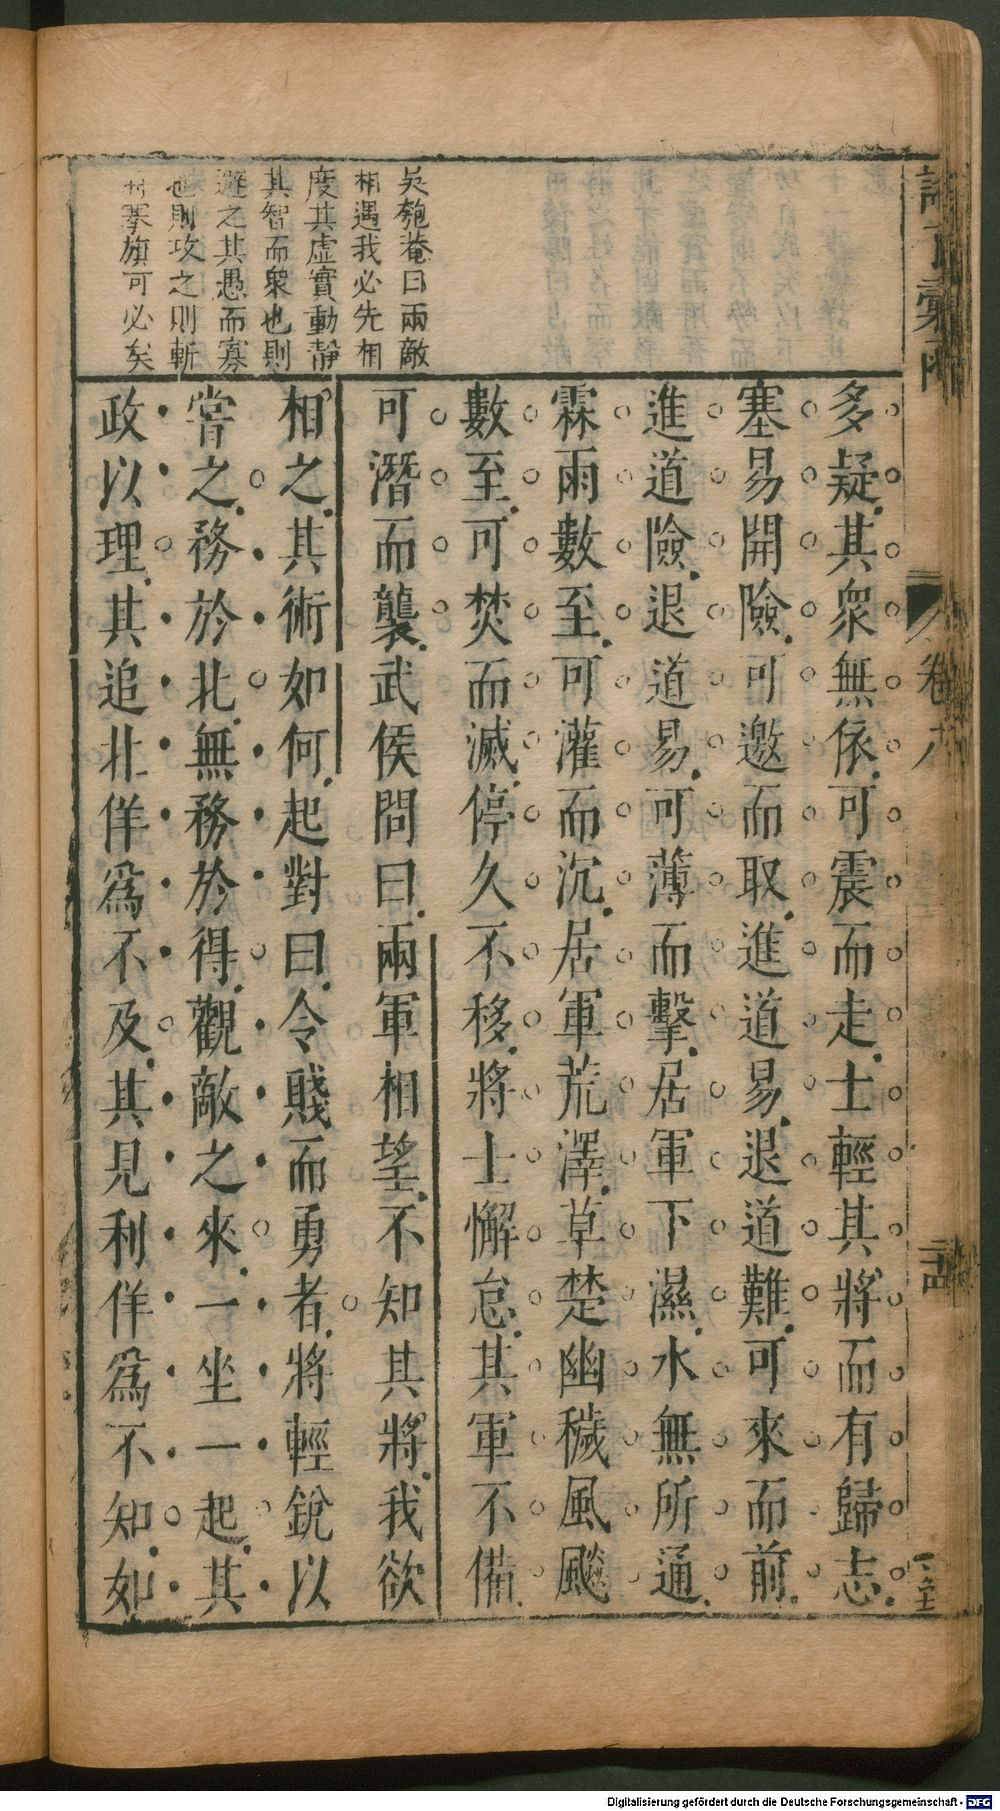 多疑其衆無依可震而走士輕其將而有歸志
塞易開險可邀而取進道易退道難可來而前
進道險退道易可薄而擊居軍下濕水無所通
霖雨數至可灌而沉居軍荒澤草楚幽穢風飈
數至可焚而滅停久不移將士懈怠其軍不備
可潛而襲武侯問曰兩軍相望不知其將我欲
相之其術如何起對曰令賤而勇者將輕銳以
嘗之務於北無務於得觀敵之來一坐一起其
政以理其追北佯爲不及其見利佯爲不知如
吳匏菴曰兩敵
相遇我必先相
度其虛實動靜
其智而衆也則
避之其愚而寡
也則攻之則斬
搴旗可必矣
卷八
Digitalisierung gefördert durch die Deutsche Forschungsgemeinschaft - DFG